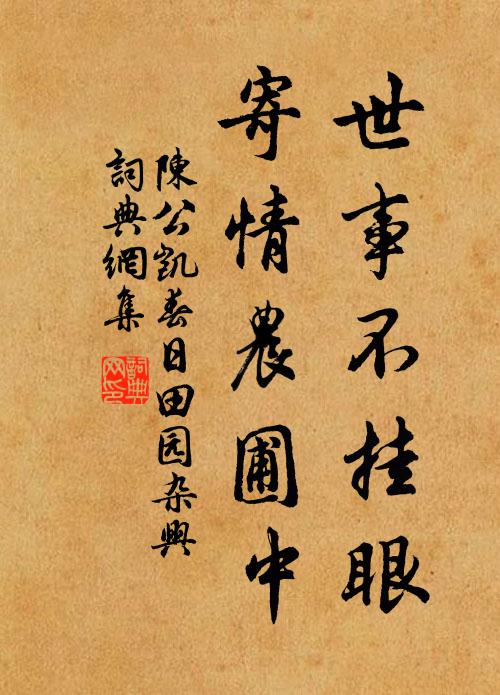 世事不挂眼
寄情農圃中
陳公凱春日田园杂興
詞典網集
詞典网印